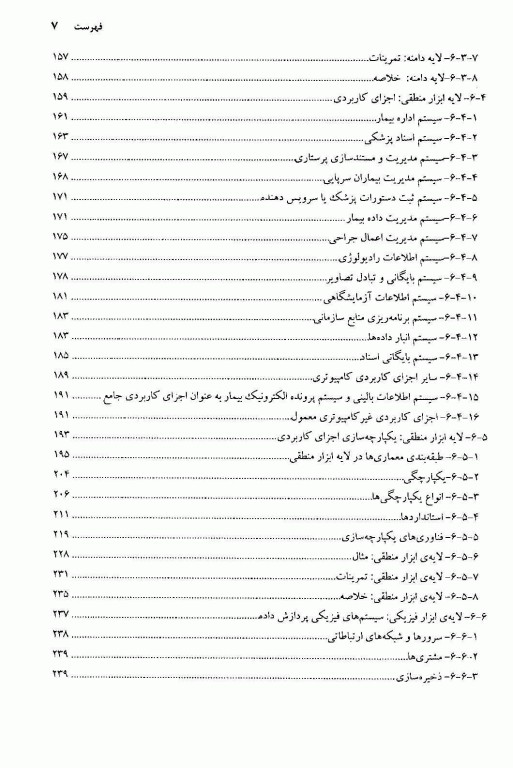 فهرست ۷
۶-۳-۷- لایه دامنه: تمرینات ۱۵۷
۶-۳-۸-لایه دامنه: خلاصه ۱۵۸
۶-۴- لایه ابزار منطقی: اجزای کاربردی ۱۵۹
۶-۴-۱- سیستم اداره بیمار ۱۶۱
۶-۴-۲- سیستم اسناد پزشکی ۱۶۳
۶-۴-۳-سیستم مدیریت و مستندسازی پرستاری ۱۶۷
۶-۴-۴- سیستم مدیریت بیماران سرپایی ۱۶۸
۶-۴-۵- سیستم ثبت دستورات پزشک یا سرویس دهنده ۱۷۱
۶-۴-۶- سیستم مدیریت داده بیمار ۱۷۱
۶-۴-۷- سیستم مدیریت اعمال جراحی ۱۷۵
۶-۴-۸- سیستم اطلاعات رادیولوژی ۱۷۷
۶-۴-۹- سیستم بایگانی و تبادل تصاویر ۱۷۸
۶-۴-۱۰- سیستم اطلاعات آزمایشگاهی ۱۸۱
۶-۴-۱۱- سیستم برنامه‌ریزی منابع سازمانی ۱۸۳
۶-۴-۱۲- سیستم انبار داده‌ها ۱۸۳
۶-۴-۱۳- سیستم بایگانی اسناد ۱۸۵
۶-۴-۱۴- سایر اجزای کاربردی کامپیوتری ۱۸۹
۶-۴-۱۵- سیستم اطلاعات بالینی و سیستم پرونده الکترونیک بیمار به عنوان اجزای کاربردی جامع ۱۹۱
۶-۴-۱۶- اجزای کاربردی غیرکامپیوتری معمول ۱۹۱
۶-۵- لایه ابزار منطقی: یکپارچه‌سازی اجزای کاربردی ۱۹۳
۶-۵-۱- طبقه‌بندی معماری‌ها در لایه ابزار منطقی ۱۹۵
۶-۵-۲-یکپارچگی ۲۰۴
۶-۵-۳- انواع یکپارچگی‌ها ۲۰۶
۶-۵-۴- استانداردها ۲۱۱
۶-۵-۵- فناوری‌های یکپارچه‌سازی ۲۱۹
۶-۵-۶- لایه‌ی ابزار منطقی: مثال ۲۲۸
۶-۵-۷- لایه‌ی ابزار منطقی: تمرینات ۲۳۱
۶-۵-۸- لایه‌ی ابزار منطقی: خلاصه ۲۳۵
۶-۶- لایه‌ی ابزار فیزیکی: سیستم‌های فیزیکی پردازش داده ۲۳۷
۶-۶-۱- سرورها و شبکه‌های ارتباطاتی ۲۳۸
۶-۶-۲- مشتری‌ها ۲۳۹
۶-۶-۳- ذخیره‌سازی ۲۳۹